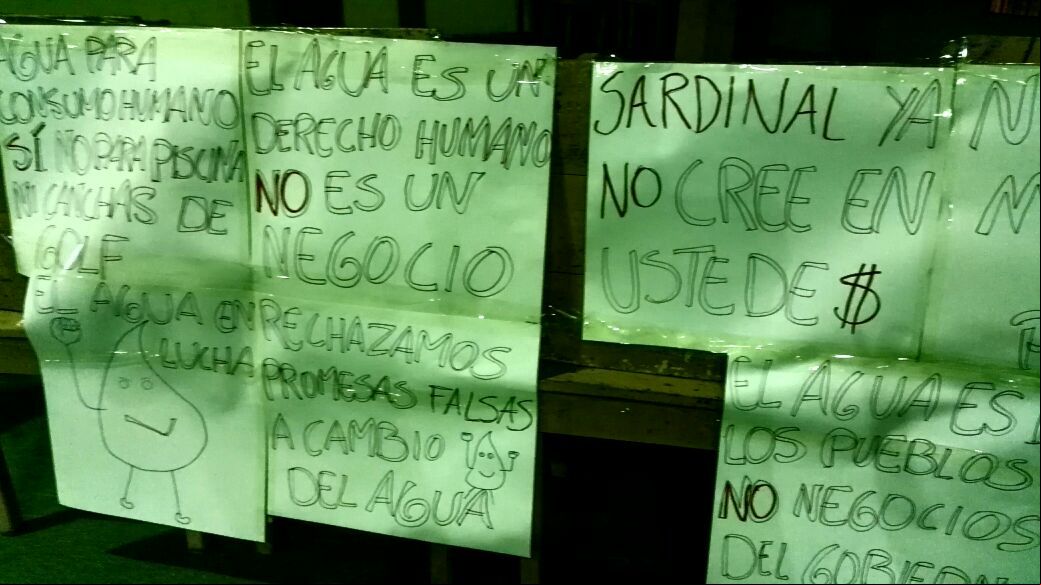 AGUA PARA
CONSUMO HUMANO
SÍ NO PARA PISCINA
NI CANCHAS DE
GOLF
EL AGUA ES UN
DERECHO HUMANO
NO ES UN
NEGOCIO
EL AGUA EN
LUCHA
RECHAZAMOS
PROMESAS FALSAS
A CAMBIO
DEL AGUA
SARDINAL YA
NO CREE EN
USTEDE$
EL AGUA ES
LOS PUEBLOS
NO NEGOCIOS
DEL GOBIERN